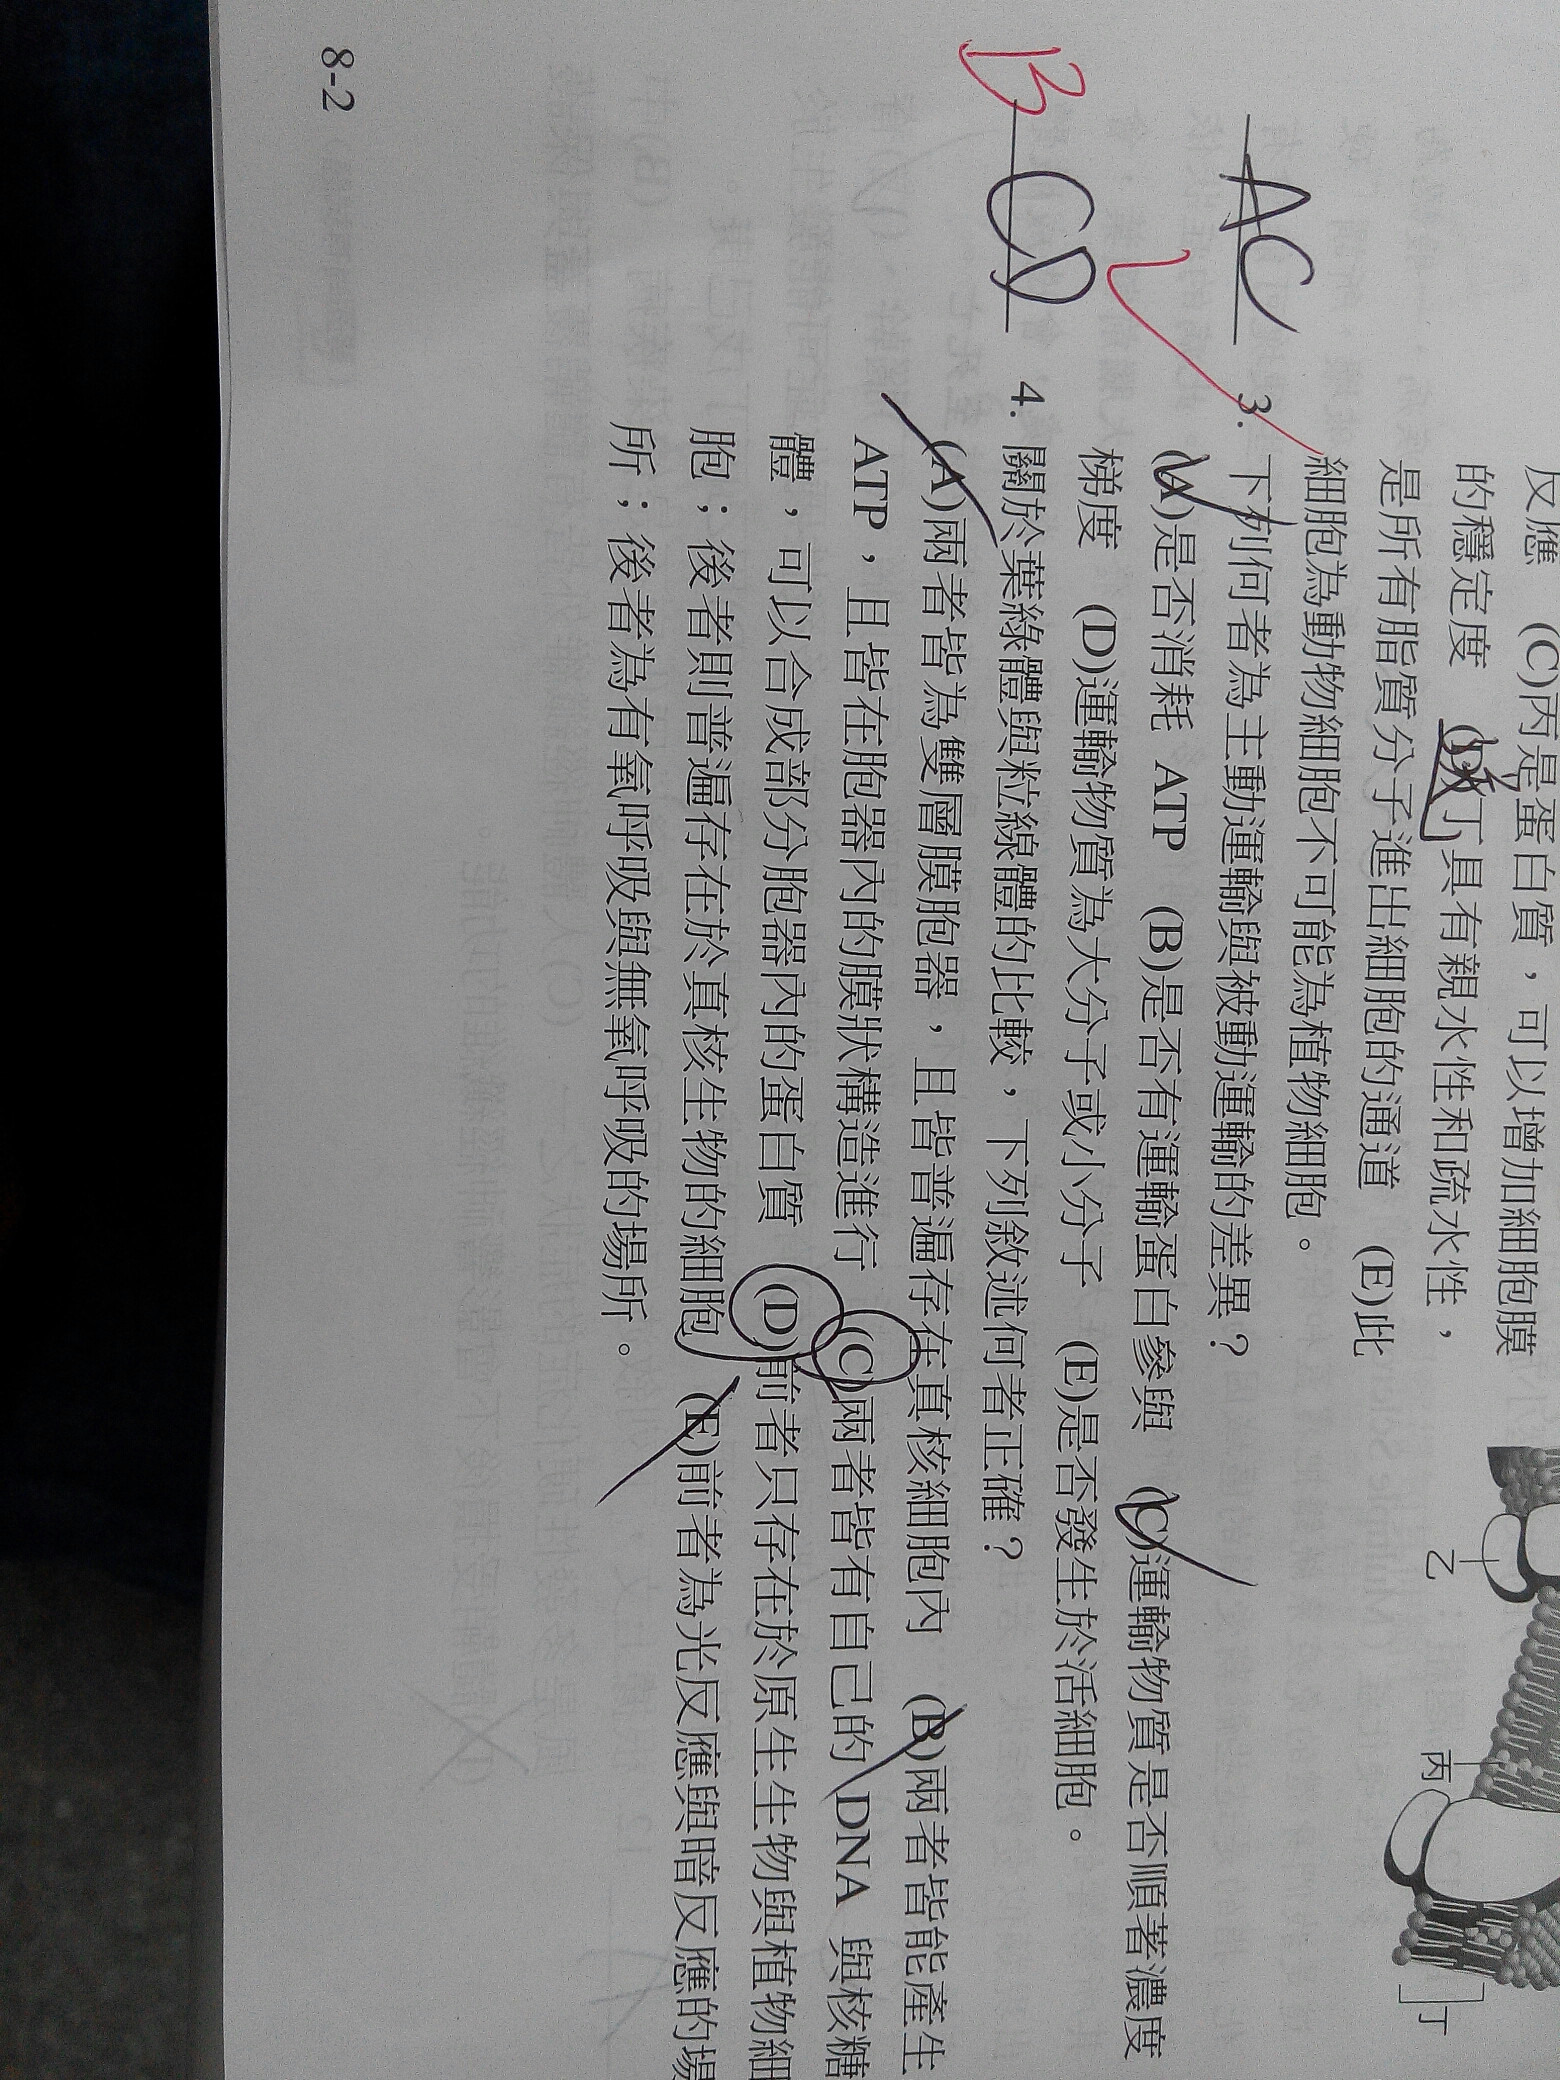 反應 (C)丙是蛋白質，可以增加細胞膜
的穩定度 (D)丁具有親水性和疏水性，
是所有脂質分子進出細胞的通道 (E)此
細胞為動物細胞不可能為植物細胞。
乙
丙
丁
AC
3. 下列何者為主動運輸與被動運輸的差異？
(A)是否消耗 ATP (B)是否有運輸蛋白參與 (C)運輸物質是否順著濃度
梯度 (D)運輸物質為大分子或小分子 (E)是否發生於活細胞。
B CD
4. 關於葉綠體與粒線體的比較，下列敘述何者正確？
(A)兩者皆為雙層膜胞器，且皆普遍存在真核細胞內 (B)兩者皆能產生
ATP，且皆在胞器內的膜狀構造進行 (C)兩者皆有自己的 DNA 與核糖
體，可以合成部分胞器內的蛋白質 (D)前者只存在於原生生物與植物細
胞；後者則普遍存在於真核生物的細胞 (E)前者為光反應與暗反應的場
所；後者為有氧呼吸與無氧呼吸的場所。
8-2